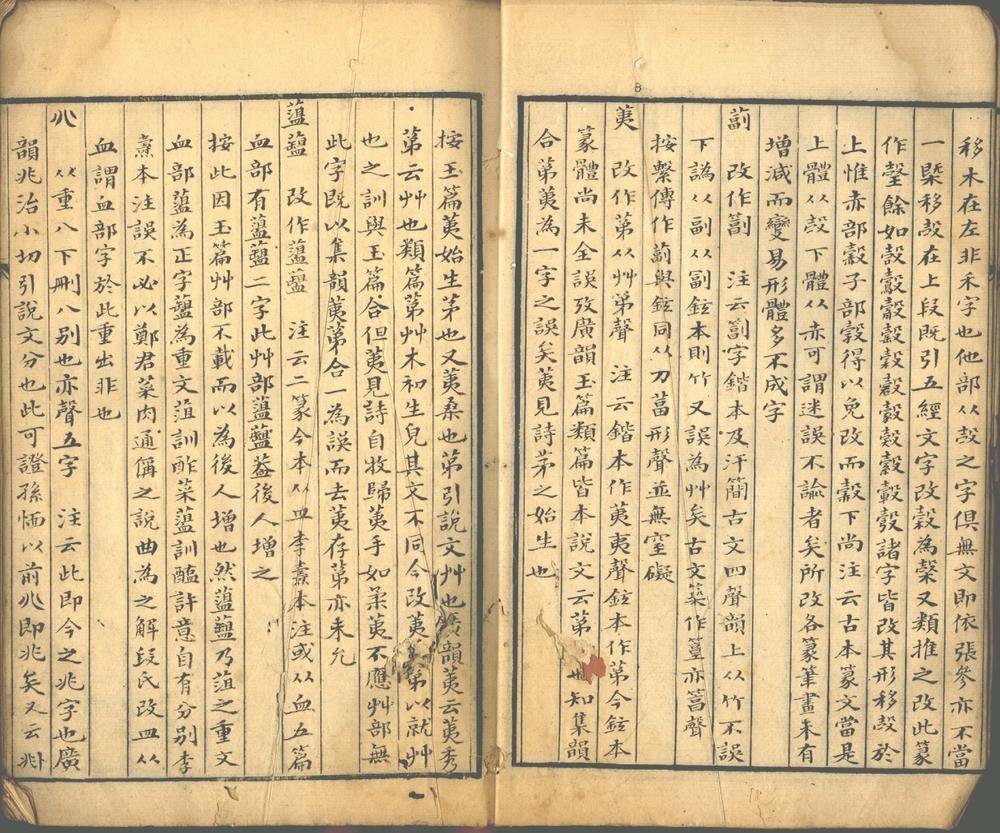 移木在左非禾字也他部从㱿之字俱無文即依張參亦不當
一槩移㱿在上段既引五經文字改穀為糳又類推之改此篆
作㲄餘如
諸字皆改其形移㱿於
上惟赤部㲉子部㝅得以免改而㲉下尚注云古本篆文當是
上體从㱿下體从赤可謂迷誤不諭者矣所改各篆筆畫未有
增減而變易形體多不成字
萷 改作箚 注云箚字鍇本及汗簡古文四聲韻上从竹不誤
下譌从副从副鉉本則竹又誤為艸矣古文築作䈞亦筥聲
按繫傳作萷與鉉同从刀畐形聲並無窒礙
荑 改作苐从艸弟聲 注云鍇本作荑夷聲鉉本作苐今鉉本
篆體尚未全誤攷廣韻玉篇類篇皆本說文云苐
也知集韻
合苐荑為一字之誤矣荑見詩茅之始生也
按玉篇荑始生茅也又荑桑也苐引說文艸也廣韻荑云荑秀
苐云艸也類篇苐艸木初生皃其文不同今改荑
苐以就艸
也之訓與玉篇合但荑見詩自牧歸荑手如柔荑不應艸部無
此字既以集韻荑苐合一為誤而去荑存苐亦未允
薀蘁 改作薀蘁 注云二篆今本从皿李燾本注或从血五篇
血部有薀蘁二字此艸部薀蘁葢後人增之
按此因玉篇艸部不載而以為後人增也然薀蘁乃菹之重文
血部薀為正字蘁為重文菹訓酢菜薀訓醢許意自有分別李
燾本注誤不必以鄭君菜肉通偁之說曲為之解段氏改皿从
血謂血部字於此重出非也
𠔁 从重八下刪八別也亦聲五字 注云此即今之兆字也廣
韻兆治小切引說文分也此可證孫愐以前𠔁即兆矣又云𠧞